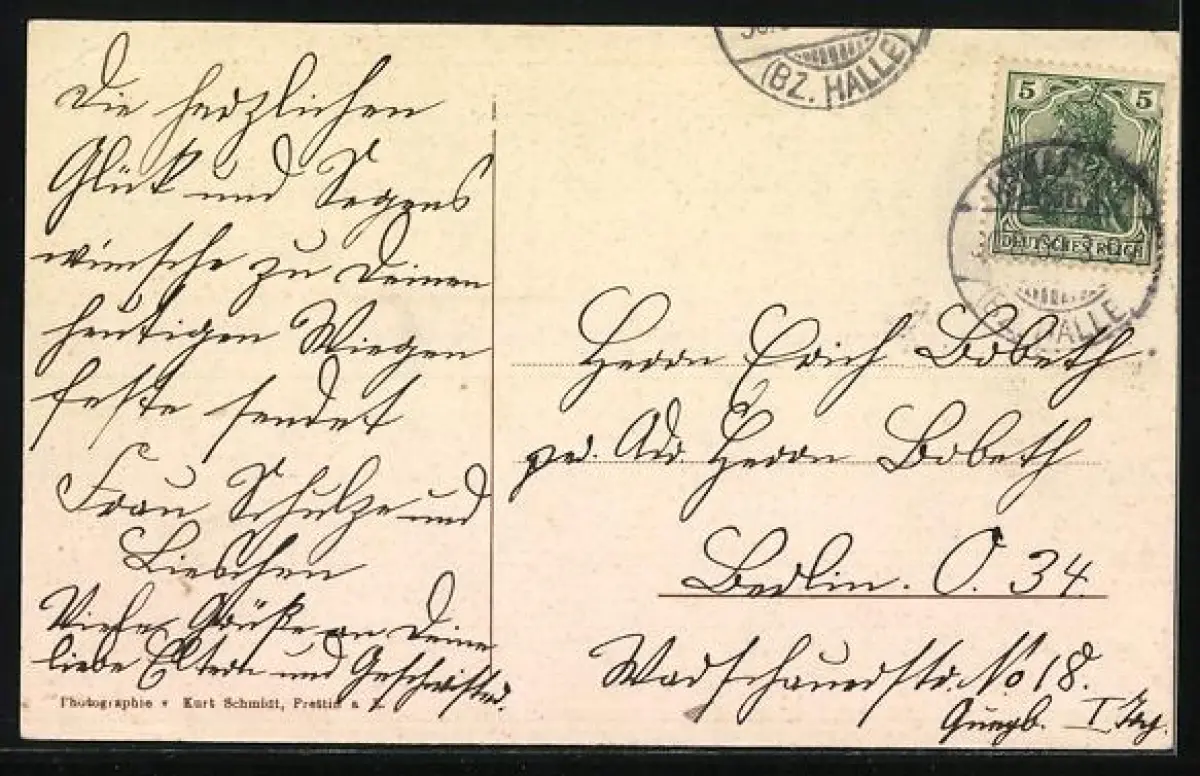 Die herzlichen
Glück und Segens
wünsche zu Deinen
heutigen Wiegen
feste sendet
Frau Schulze und
Lieschen
Viele Grüße an Deine
liebe Eltern und Geschwister.
Photographie v Kurt Schmidt, Prettin a E.
(BZ. HALLE)
5 5
DEUTSCHES REICH
(BZ. HALLE)
Herrn Erich Bobeth
pr. Adr. Herrn Bobeth
Berlin. O. 34.
Warschauerstr. No 18.
I